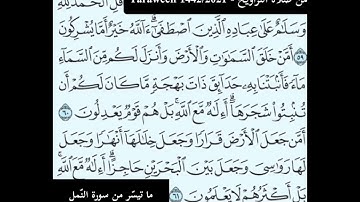 من صلاة التراويح - Taraweeh 1442/2021
قُلِ ٱلۡحَمۡدُ لِلَّهِ
وَسَلَٰمٌ عَلَىٰ عِبَادِهِ ٱلَّذِينَ ٱصۡطَفَىٰٓۗ ءَآللَّهُ خَيۡرٌ أَمَّا يُشۡرِكُونَ
٥٩ أَمَّنۡ خَلَقَ ٱلسَّمَٰوَٰتِ وَٱلۡأَرۡضَ وَأَنزَلَ لَكُم مِّنَ ٱلسَّمَآءِ
مَآءً فَأَنۢبَتۡنَا بِهِۦ حَدَآئِقَ ذَاتَ بَهۡجَةٍ مَّا كَانَ لَكُمۡ أَن
تُنۢبِتُواْ شَجَرَهَآۗ أَءِلَٰهٌ مَّعَ ٱللَّهِۚ بَلۡ هُمۡ قَوۡمٌ يَعۡدِلُونَ ٦٠
أَمَّن جَعَلَ ٱلۡأَرۡضَ قَرَارًا وَجَعَلَ خِلَٰلَهَآ أَنۡهَٰرًا وَجَعَلَ
لَهَا رَوَٰسِيَ وَجَعَلَ بَيۡنَ ٱلۡبَحۡرَيۡنِ حَاجِزًاۗ أَءِلَٰهٌ مَّعَ ٱللَّهِۚ
بَلۡ أَكۡثَرُهُمۡ لَا يَعۡلَمُونَ ٦١
ما تيسّر من سورة النّمل